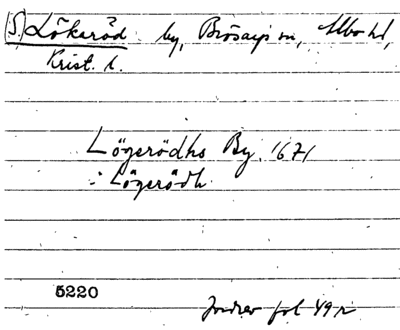 (S.) Lökaröd by, Brösarps sn, Albo hd,
Krist. l.
Lögerödhs By. 1671
: Lögerödh
5220
Jordrev fol 49 r